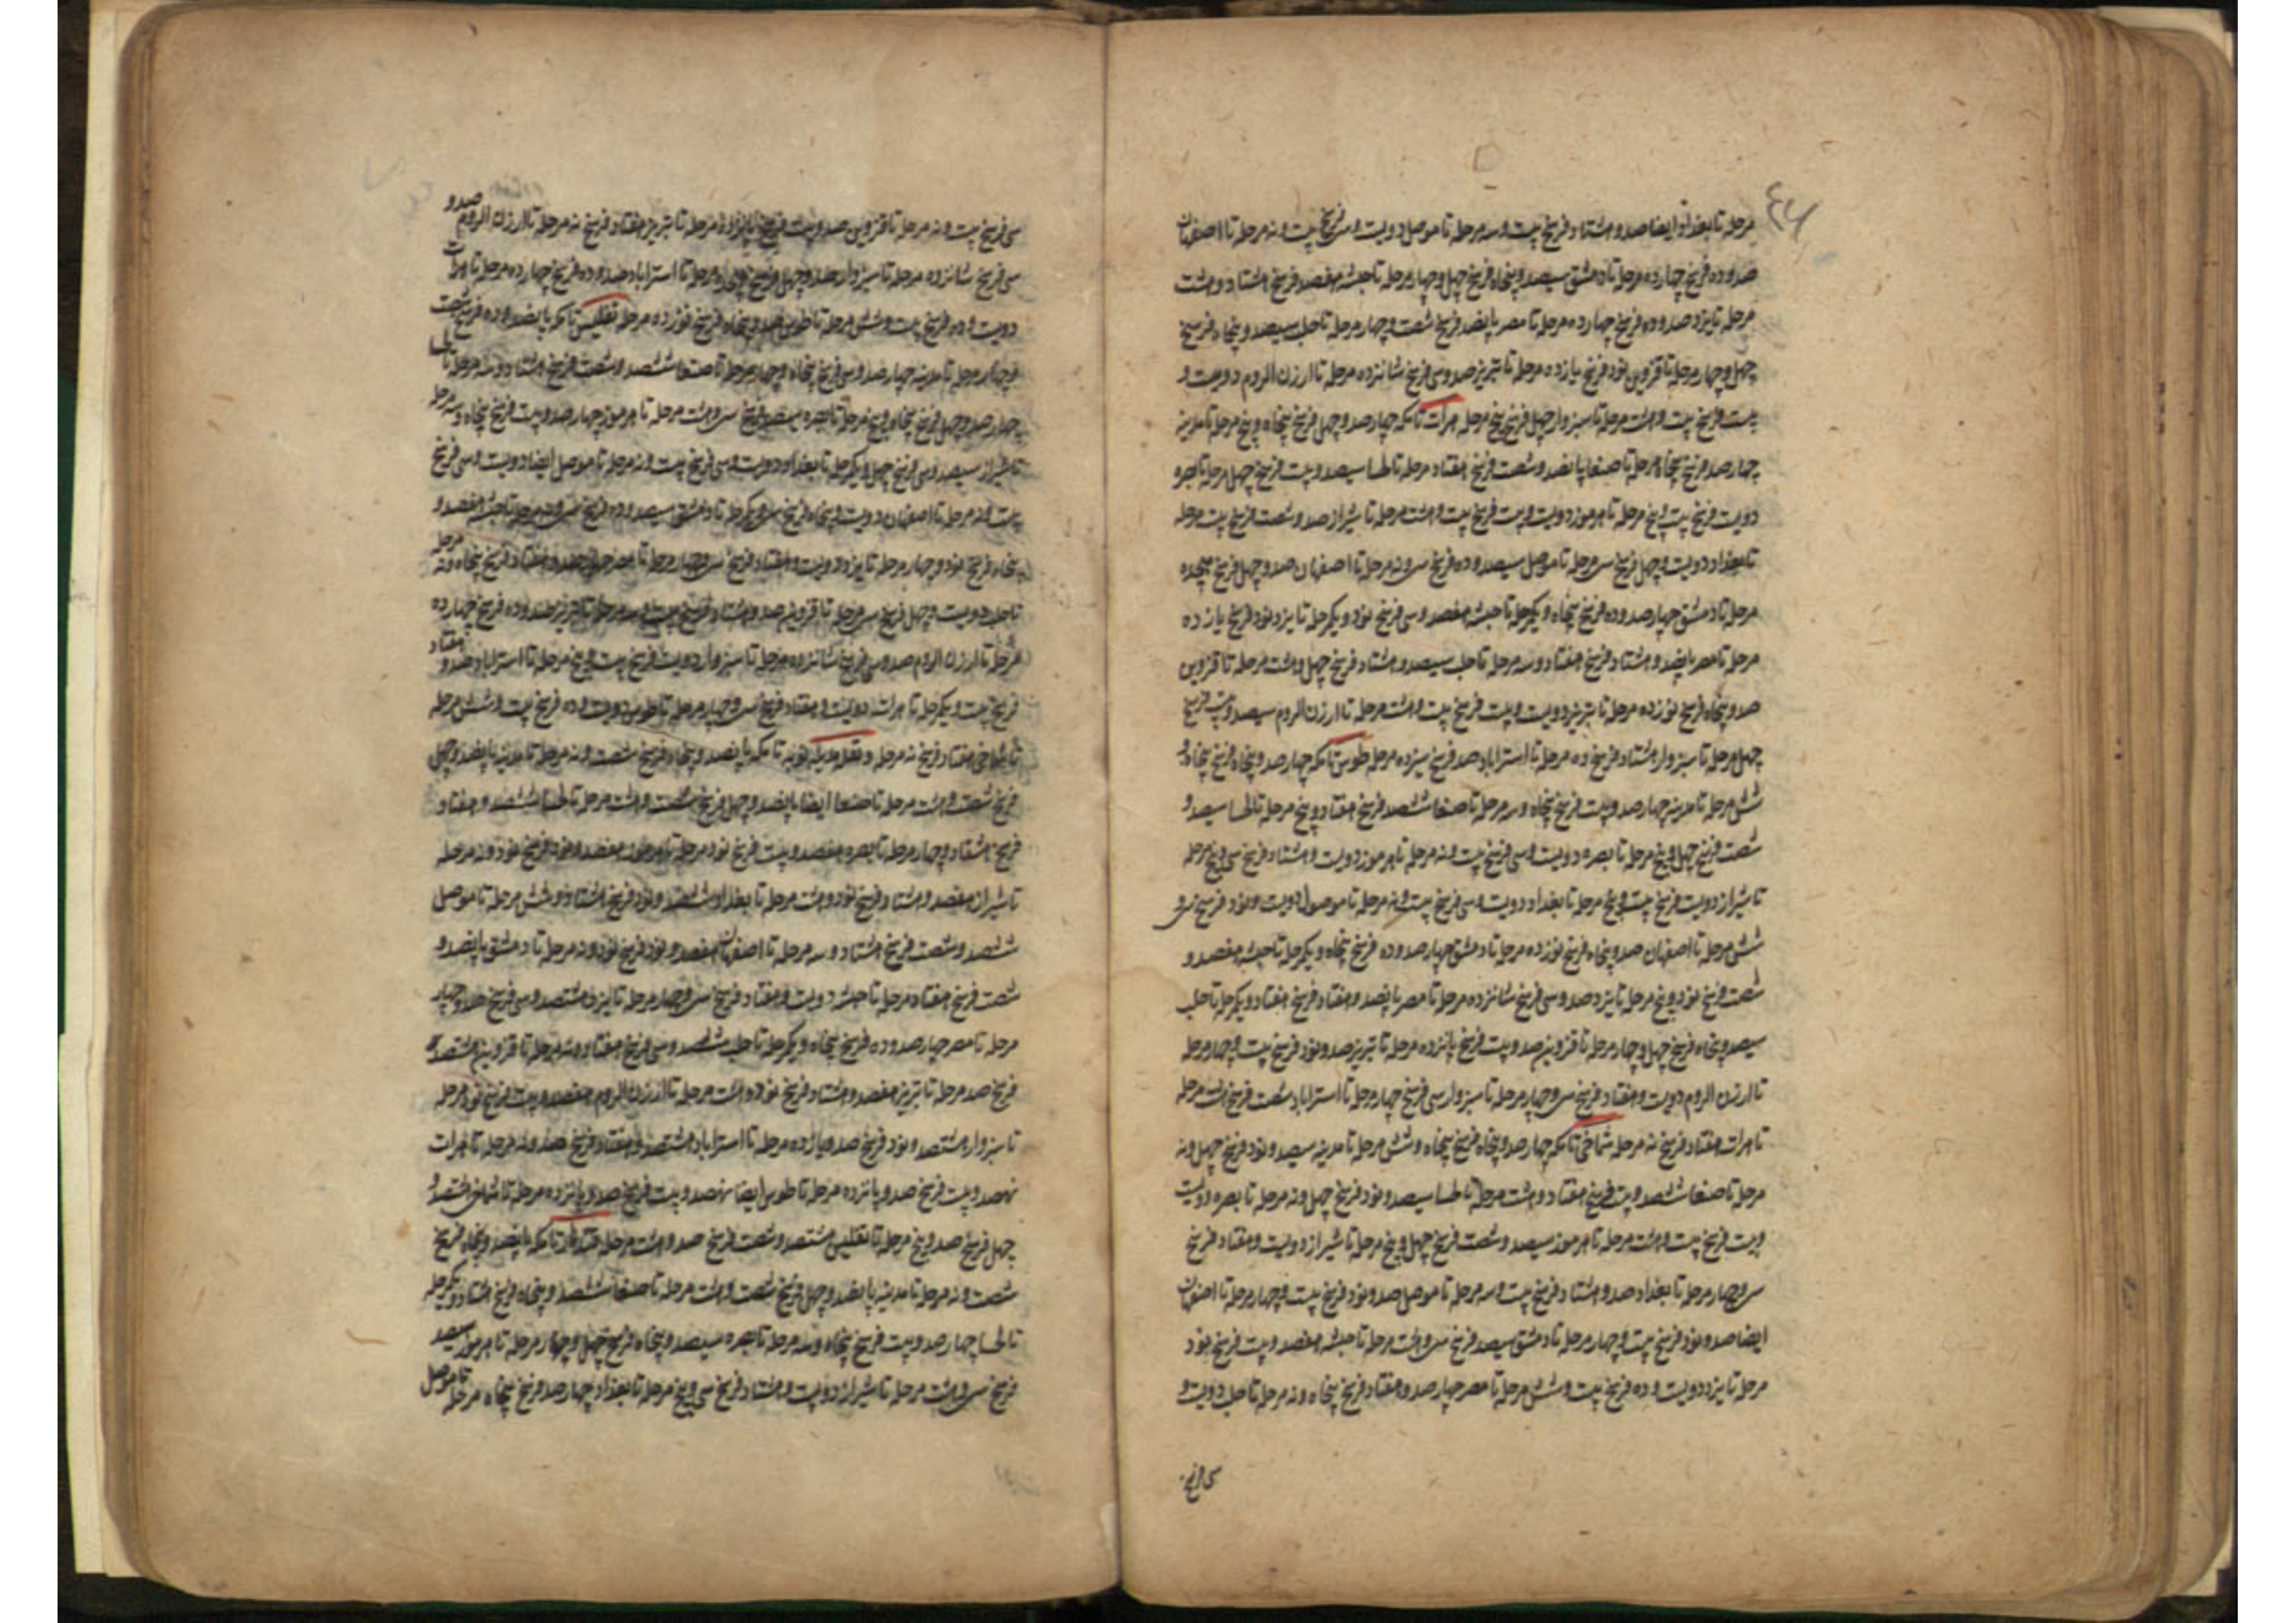 مرحله تا بغداد ایضا صد و هشتاد فرسخ بیست و سه مرحله تا موصل دویست و سی فرسخ بیست و نه مرحله تا اصفهان
صد و ده فرسخ چهارده مرحله تا دمشق سیصد و پنجاه فرسخ چهل و چهار مرحله تا حبشه هفصد فرسخ هشتاد و هشت
مرحله تا یزد صد و ده فرسخ چهارده مرحله تا مصر پانصد فرسخ شصت و چهار مرحله تا حلب سیصد و پنجاه فرسخ
چهل و چهار مرحله تا قزوین نود فرسخ یازده مرحله تا تبریز صد و سی فرسخ شانزده مرحله تا ارزن الروم دویست و
بیست فرسخ بیست و هشت مرحله تا سبزوار چهل فرسخ پنج مرحله هرات تا مکه چهارصد و چهل فرسخ پنجاه و پنج مرحله تا مدینه
چهارصد فرسخ پنجاه مرحله تا صنعا پانصد و شصت فرسخ هفتاد مرحله تا لحسا سیصد و بیست فرسخ چهل مرحله تا بصره
دویست فرسخ بیست و پنج مرحله تا هرموز دویست و بیست فرسخ بیست و هشت مرحله تا شیراز صد و شصت فرسخ بیست مرحله
تا بغداد دویست و چهل فرسخ سی مرحله تا موصل سیصد و ده فرسخ سی و نه مرحله تا اصفهان صد و چهل فرسخ هیجده
مرحله تا دمشق چهارصد و ده فرسخ پنجاه و یکمرحله تا حبشه هفصد و سی فرسخ نود و یکمرحله تا یزد نود فرسخ یازده
مرحله تا مصر پانصد و هشتاد فرسخ هفتاد و سه مرحله تا حلب سیصد و هشتاد فرسخ چهل و هشت مرحله تا قزوین
صد و پنجاه فرسخ نوزده مرحله تا تبریز دویست و بیست فرسخ بیست و هشت مرحله تا ارزن الروم سیصد و بیست فرسخ
چهل مرحله تا سبزوار هشتاد فرسخ ده مرحله تا استراباد صد فرسخ سیزده مرحله طوس تا مکه چهارصد و پنجاه فرسخ پنجاه و
شش مرحله تا مدینه چهارصد و بیست فرسخ پنجاه و سه مرحله تا صنعا ششصد فرسخ هفتاد و پنج مرحله تا لحسا سیصد و
شصت فرسخ چهل و پنج مرحله تا بصره دویست و سی فرسخ بیست و نه مرحله تا هرموز دویست و هشتاد فرسخ سی و پنج مرحله
تا شیراز دویست فرسخ بیست و پنج مرحله تا بغداد دویست و سی فرسخ بیست و نه مرحله تا موصل دویست و نود فرسخ سی و
شش مرحله تا اصفهان صد و پنجاه فرسخ نوزده مرحله تا دمشق چهارصد و ده فرسخ پنجاه و یکمرحله تا حبشه هفصد و
شصت فرسخ نود و پنج مرحله تا یزد صد و سی فرسخ شانزده مرحله تا مصر پانصد و هفتاد فرسخ هفتاد و یکمرحله تا حلب
سیصد و پنجاه فرسخ چهل و چهار مرحله تا قزوین صد و بیست فرسخ پانزده مرحله تا تبریز صد و نود فرسخ بیست و چهار مرحله
تا ارزن الروم دویست و هفتاد فرسخ سی و چهار مرحله تا سبزوار سی فرسخ چهار مرحله تا استراباد شصت فرسخ هشت مرحله
تا هرات هفتاد فرسخ نه مرحله شماخی تا مکه چهارصد و پنجاه فرسخ پنجاه و شش مرحله تا مدینه سیصد و نود فرسخ چهل و نه
مرحله تا صنعا ششصد و بیست فرسخ هفتاد و هشت مرحله تا لحسا سیصد و نود فرسخ چهل و نه مرحله تا بصره دویست
و بیست فرسخ بیست و هشت مرحله تا هرموز سیصد و شصت فرسخ چهل و پنج مرحله تا شیراز دویست و هفتاد فرسخ
سی و چهار مرحله تا بغداد صد و هشتاد فرسخ بیست و سه مرحله تا موصل صد و نود فرسخ بیست و چهار مرحله تا اصفهان
ایضا صد و نود فرسخ بیست و چهار مرحله تا دمشق سیصد فرسخ سی و هشت مرحله تا حبشه هفصد و بیست فرسخ نود
مرحله تا یزد دویست و ده فرسخ بیست و شش مرحله تا مصر چهارصد و هفتاد فرسخ پنجاه و نه مرحله تا حلب دویست و
سی فرسخ
سی فرسخ بیست و نه مرحله تا قزوین صد و بیست فرسخ پانزده مرحله تا تبریز هفتاد فرسخ نه مرحله تا ارزن الروم صد و
سی فرسخ شانزده مرحله تا سبزوار صد و چهل فرسخ مرحله تا استراباد صد و ده فرسخ چهارده مرحله تا هرات
دویست و ده فرسخ بیست و شش مرحله تا طوس صد و پنجاه فرسخ نوزده مرحله تفلیس تا مکه پانصد و ده فرسخ شصت
و چهار مرحله تا مدینه چهارصد و سی فرسخ پنجاه و چهار مرحله تا صنعا ششصد و شصت فرسخ هشتاد و سه مرحله تا لحسا
چهارصد و چهل فرسخ پنجاه و پنج مرحله تا بصره سیصد فرسخ سی و هشت مرحله تا هرموز چهارصد و بیست فرسخ پنجاه و سه مرحله
تا شیراز سیصد و سی فرسخ چهل و یکمرحله تا بغداد دویست و سی فرسخ بیست و نه مرحله تا موصل ایضا دویست و سی فرسخ
بیست و نه مرحله تا اصفهان دویست و پنجاه فرسخ سی و یکمرحله تا دمشق سیصد و ده فرسخ سی و نه مرحله تا حبشه هفصد و
پنجاه فرسخ نود و چهار مرحله تا یزد دویست و هفتاد فرسخ سی و چهار مرحله تا مصر چهارصد و هفتاد فرسخ پنجاه و نه مرحله
تا حلب دویست و چهل فرسخ سی مرحله تا قزوین صد و هشتاد فرسخ بیست و سه مرحله تا تبریز صد و ده فرسخ چهارده
مرحله تا ارزن الروم صد و سی فرسخ شانزده مرحله تا سبزوار دویست فرسخ بیست و پنج مرحله تا استراباد صد و هفتاد
فرسخ بیست و یکمرحله تا هرات دویست و هفتاد فرسخ سی و چهار مرحله تا طوس دویست و ده فرسخ بیست و شش مرحله
تا شماخی هفتاد فرسخ نه مرحله نوبه تا مکه پانصد و پنجاه فرسخ شصت و نه مرحله تا مدینه پانصد و چهل
فرسخ شصت و هشت مرحله تا صنعا ایضا پانصد و چهل فرسخ شصت و هشت مرحله تا لحسا ششصد و هفتاد
فرسخ هشتاد و چهار مرحله تا بصره هفصد و بیست فرسخ نود مرحله تا هرموز هفصد و نود فرسخ نود و نه مرحله
تا شیراز هفصد و هشتاد فرسخ نود و هشت مرحله تا بغداد ششصد و نود فرسخ هشتاد و شش مرحله تا موصل
ششصد و شصت فرسخ هشتاد و سه مرحله تا اصفهان هفصد و نود فرسخ نود و نه مرحله تا دمشق پانصد و
شصت فرسخ هفتاد مرحله تا حبشه دویست و هفتاد فرسخ سی و چهار مرحله تا یزد هشتصد و سی فرسخ صد و چهار
مرحله تا مصر چهارصد و ده فرسخ پنجاه و یکمرحله تا حلب ششصد و سی فرسخ هفتاد و نه مرحله تا قزوین هشتصد
فرسخ صد مرحله تا تبریز هفصد و هشتاد فرسخ نود و هشت مرحله تا ارزن الروم هفصد و بیست فرسخ نود مرحله
تا سبزوار هشتصد و نود فرسخ صد و یازده مرحله تا استراباد هشتصد و هفتاد فرسخ صد و نه مرحله تا هرات
نهصد و بیست فرسخ صد و پانزده مرحله تا طوس ایضا نهصد و بیست فرسخ صد و پانزده مرحله تا شماخی هشتصد و
چهل فرسخ صد و پنج مرحله تا تفلیس هشتصد و شصت فرسخ صد و هشت مرحله تا مکه پانصد و پنجاه فرسخ
شصت و نه مرحله تا مدینه پانصد و چهل فرسخ شصت و هشت مرحله تا صنعا ششصد و پنجاه فرسخ هشتاد و یکمرحله
تا لحسا چهارصد و بیست فرسخ پنجاه و سه مرحله تا بصره سیصد و پنجاه فرسخ چهل و چهار مرحله تا هرموز سیصد
فرسخ سی و هشت مرحله تا شیراز دویست و هشتاد فرسخ سی و پنج مرحله تا بغداد چهارصد فرسخ پنجاه مرحله تا موصل